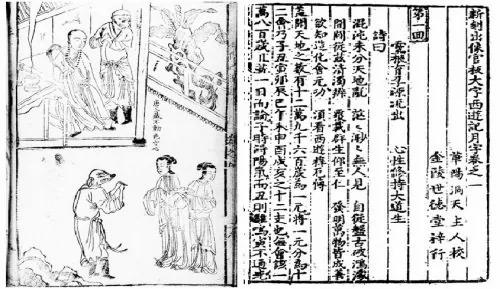 新刻出像官板大字西遊記月字卷之一
華陽洞天主人校
金陵世德堂梓行
第一回
靈根育孕源流出 心性修持大道生
詩曰
混沌未分天地亂 茫茫渺渺無人見 自從盤古破鴻濛
開闢從茲清濁辨 覆載群生仰至仁 發明萬物皆成善
欲知造化會元功 須看西遊釋厄傳
蓋聞天地之數有十二萬九千六百歲為一元將一元分為十
二會乃子丑寅卯辰巳午未申酉戌亥之十二支也每會該一
萬八百歲且就一日而論子時得陽氣而丑則雞鳴寅不通光